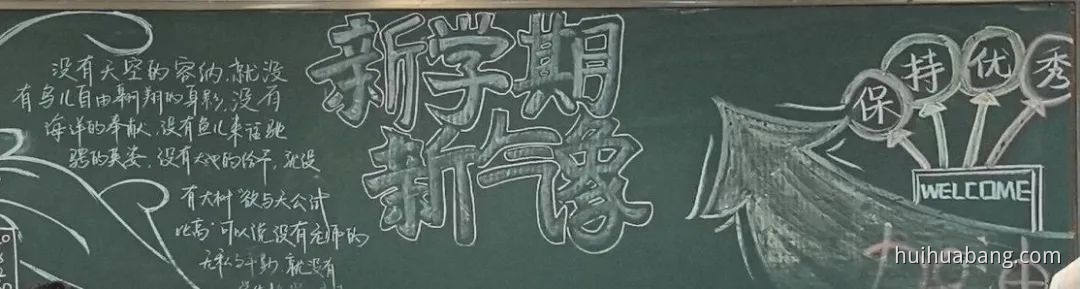 没有天空的容纳,就没
有鸟儿自由翱翔的身影,没有
海洋的奉献,没有鱼儿来往驰
骋的英姿,没有大地的给予,就没
有大树“欲与天公试
比高”可以说没有老师的
无私与干勤,就没有
新学期
新气象
保持优秀
WELCOME
huihuabang.com